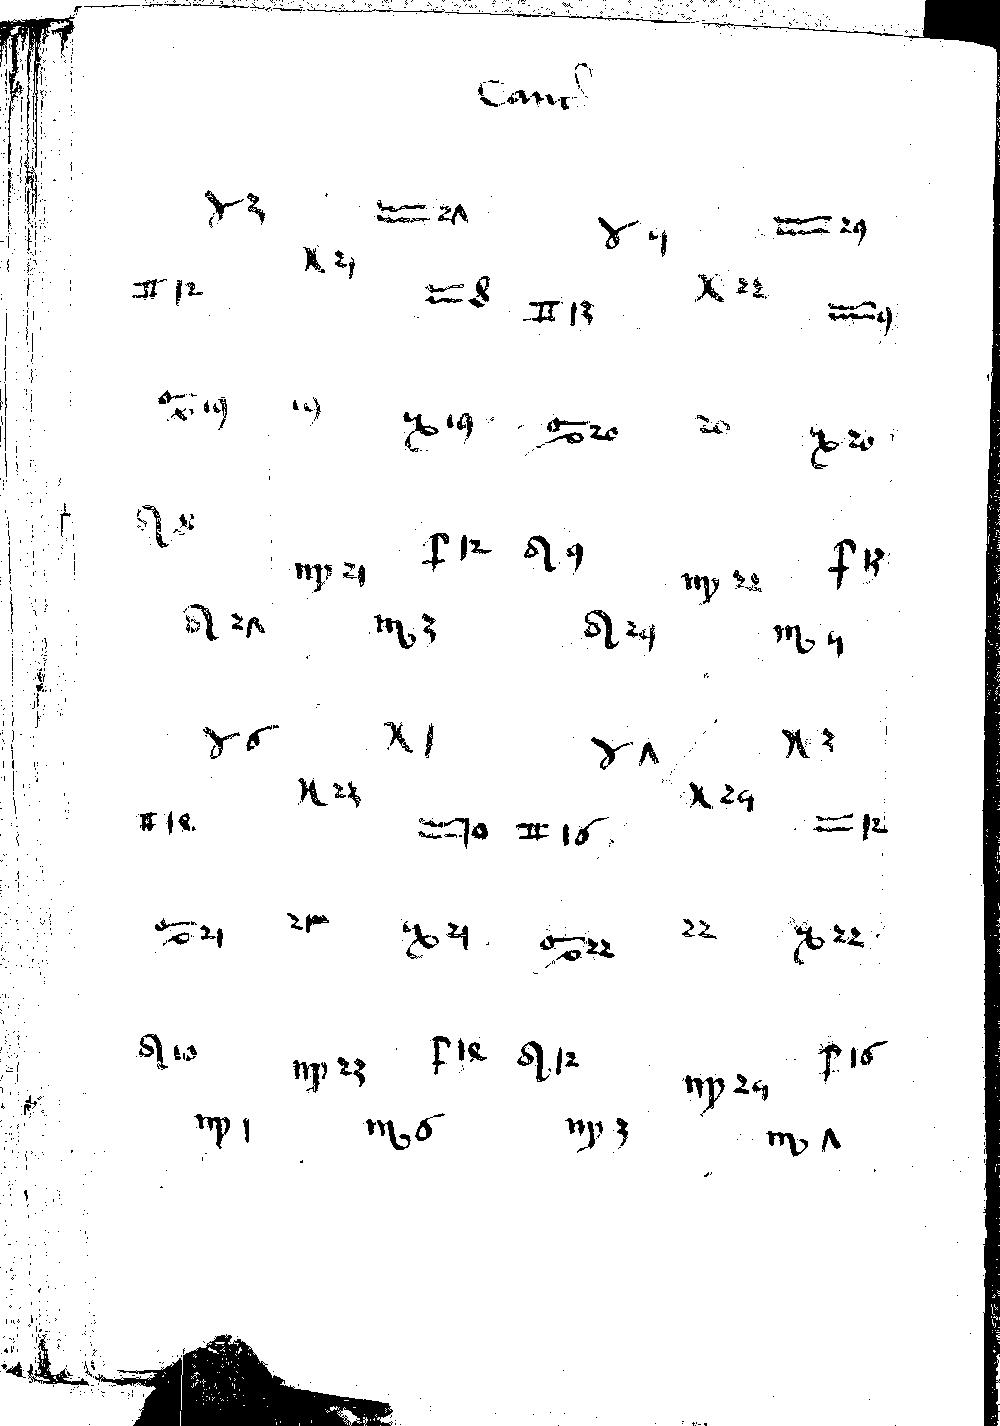 Canc
♉ 3 ♒ 27 ♉ 5 ♒ 29
♓ 21 ♓ 22
♊ 12 ♒ 8 ♊ 13 ♒ 9
♋ 19 19 ♑ 19 ♋ 20 20 ♑ 20
♌ 8 ♐ 12 ♌ 9 ♐ 13
♍ 21 ♍ 22
♌ 27 ♏ 3 ♌ 29 ♏ 5
♉ 6 ♓ 1 ♉ 7 ♓ 3
♓ 23 ♓ 25
♊ 14 ♒ 10 ♊ 16 ♒ 12
♋ 21 21 ♑ 21 ♋ 22 22 ♑ 22
♌ 10 ♐ 14 ♌ 12 ♐ 16
♍ 23 ♍ 25
♍ 1 ♏ 6 ♍ 3 ♏ 7